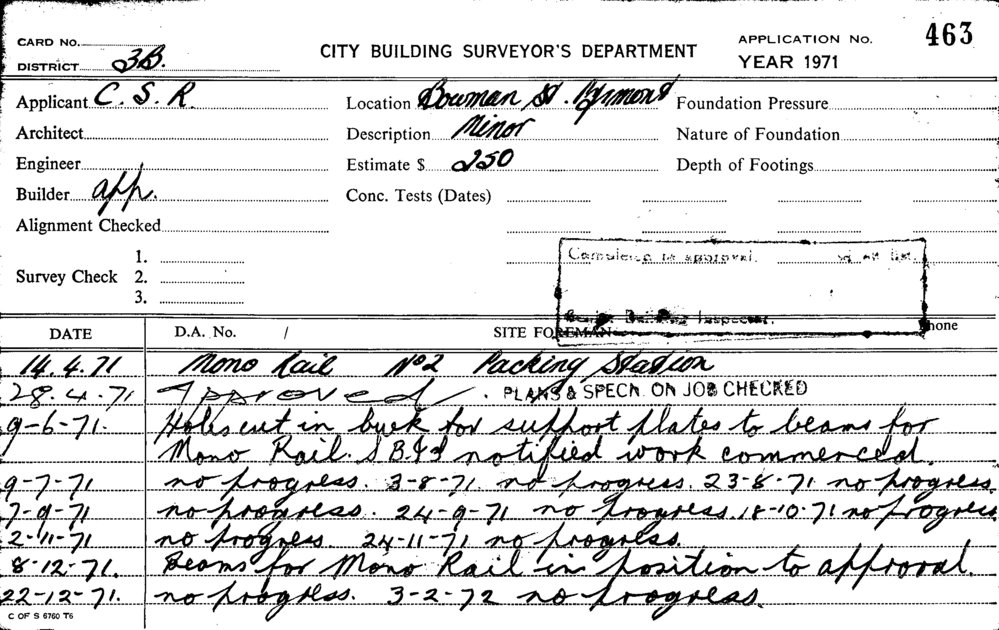 CARD No.
DISTRICT 3B.
CITY BUILDING SURVEYOR'S DEPARTMENT
APPLICATION No. 463
YEAR 1971
Applicant C. S. R.
Location Bowman St. Pyrmont
Foundation Pressure
Architect
Description Minor
Nature of Foundation
Engineer
Estimate $ 250
Depth of Footings
Builder app.
Conc. Tests (Dates)
Alignment Checked
Survey Check
1.
2.
3.
Completed to approval.
Building Inspector.
DATE D.A. No. / SITE FOREMAN Phone
14.4.71 Mono Rail No 2 Packing Station
28.4.71 Approved. PLANS & SPECN. ON JOB CHECKED
9-6-71. Holes cut in brick for support plates to beams for
Mono Rail. S.B.&I notified work commenced.
9-7-71 no progress. 3-8-71 no progress. 23-8-71 no progress.
7-9-71 no progress. 24-9-71 no progress. 18-10-71 no progress
2-11-71 no progress. 24-11-71 no progress.
8-12-71. Beams for Mono Rail in position to approval.
22-12-71. no progress. 3-2-72 no progress.
C OF S 6760 T6